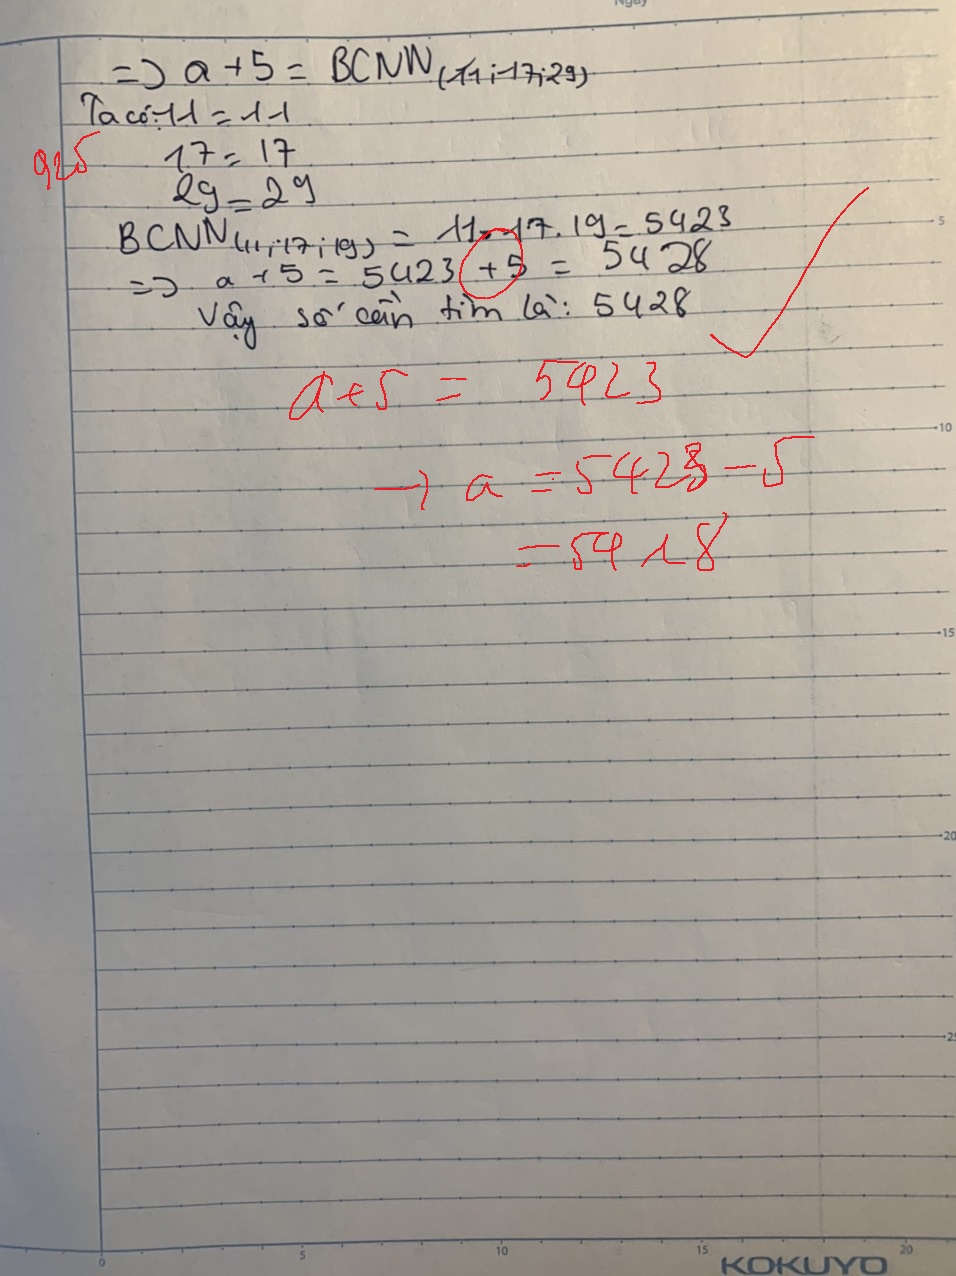 => a + 5 = BCNN (11; 17; 29)
Ta có: 11 = 11
17 = 17
29 = 29
0,25
BCNN (11; 17; 19) = 11. 17. 19 = 5423
=> a + 5 = 5423 + 5 = 5428
Vậy số cần tìm là: 5428
a + 5 = 5423
→ a = 5423 - 5
= 5418
5
10
15
20
25
0 5 10 15 20
KOKUYO